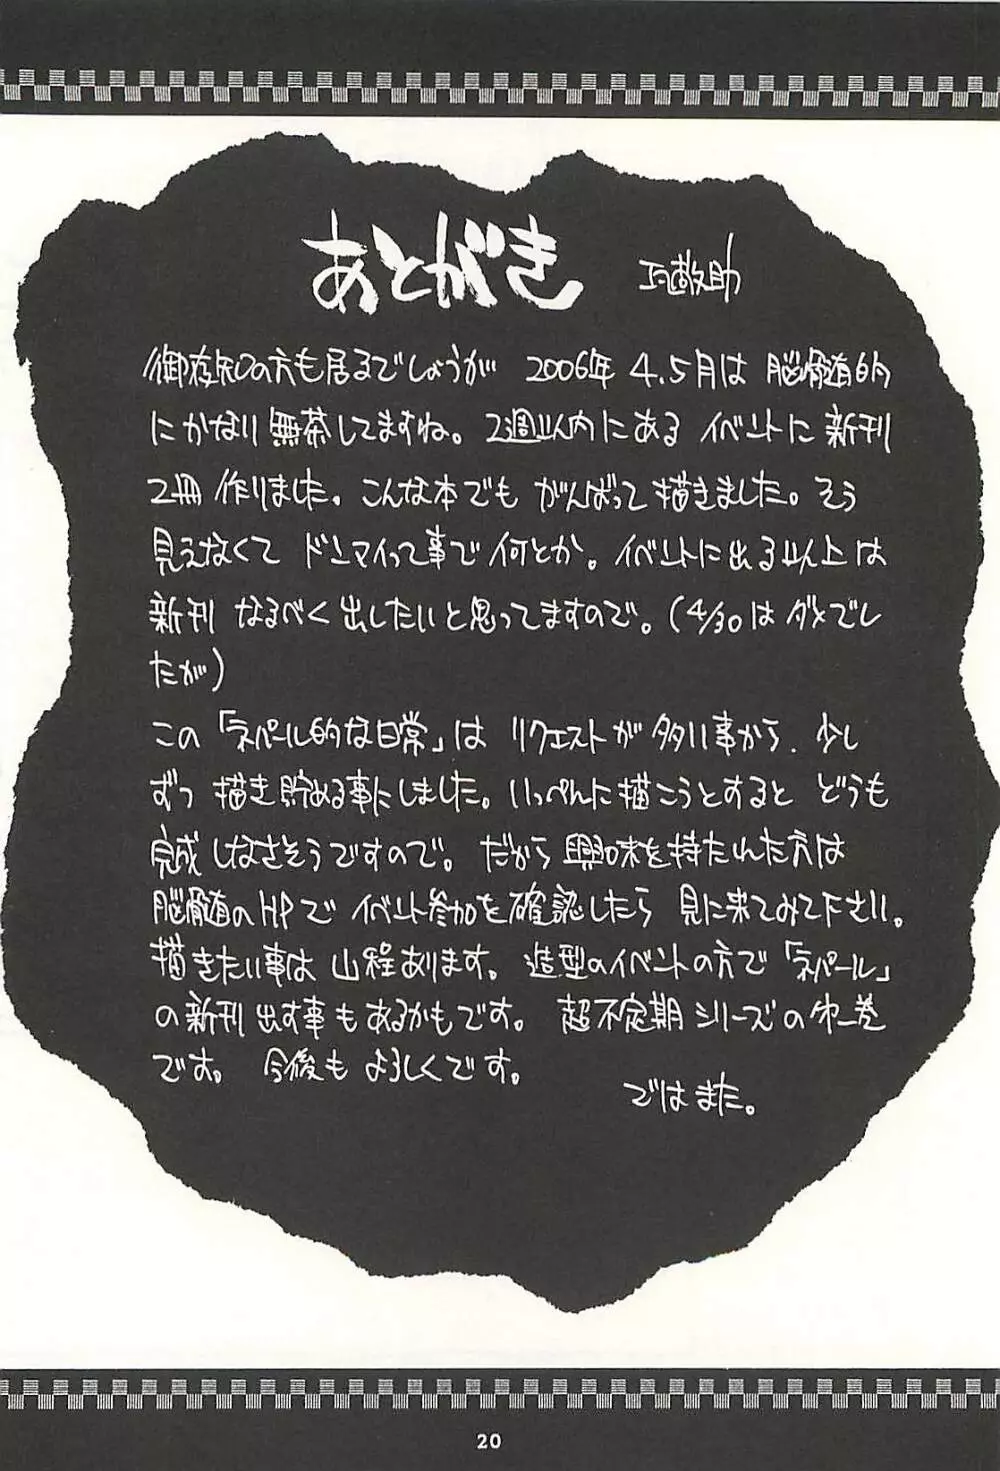 あとがき 工凡敬助
御存知の方も居るでしょうが 2006年 4.5月は 脳骨髄的
にかなり無茶してますね。2週以内にある イベントに 新刊
2冊 作りました。こんな本でも がんばって 描きました。そう
見えなくて ドンマイって事で 何とか。イベントに出る以上は
新刊 なるべく 出したいと思ってますので。(4/30は ダメでし
たが)
この「ネパール的な日常」は リクエストが 多い事から、少し
ずつ 描き貯める事にしました。いっぺんに描こうとすると どうも
完成しなさそうですので。だから 興味を持たれた方は
脳骨髄のHPで イベント参加を確認したら 見に来てみて下さい。
描きたい事は 山程あります。造型のイベントの方で「ネパール」
の新刊 出す事もあるかもです。 超不定期シリーズの 第一巻
です。 今後も よろしくです。
ではまた。
20